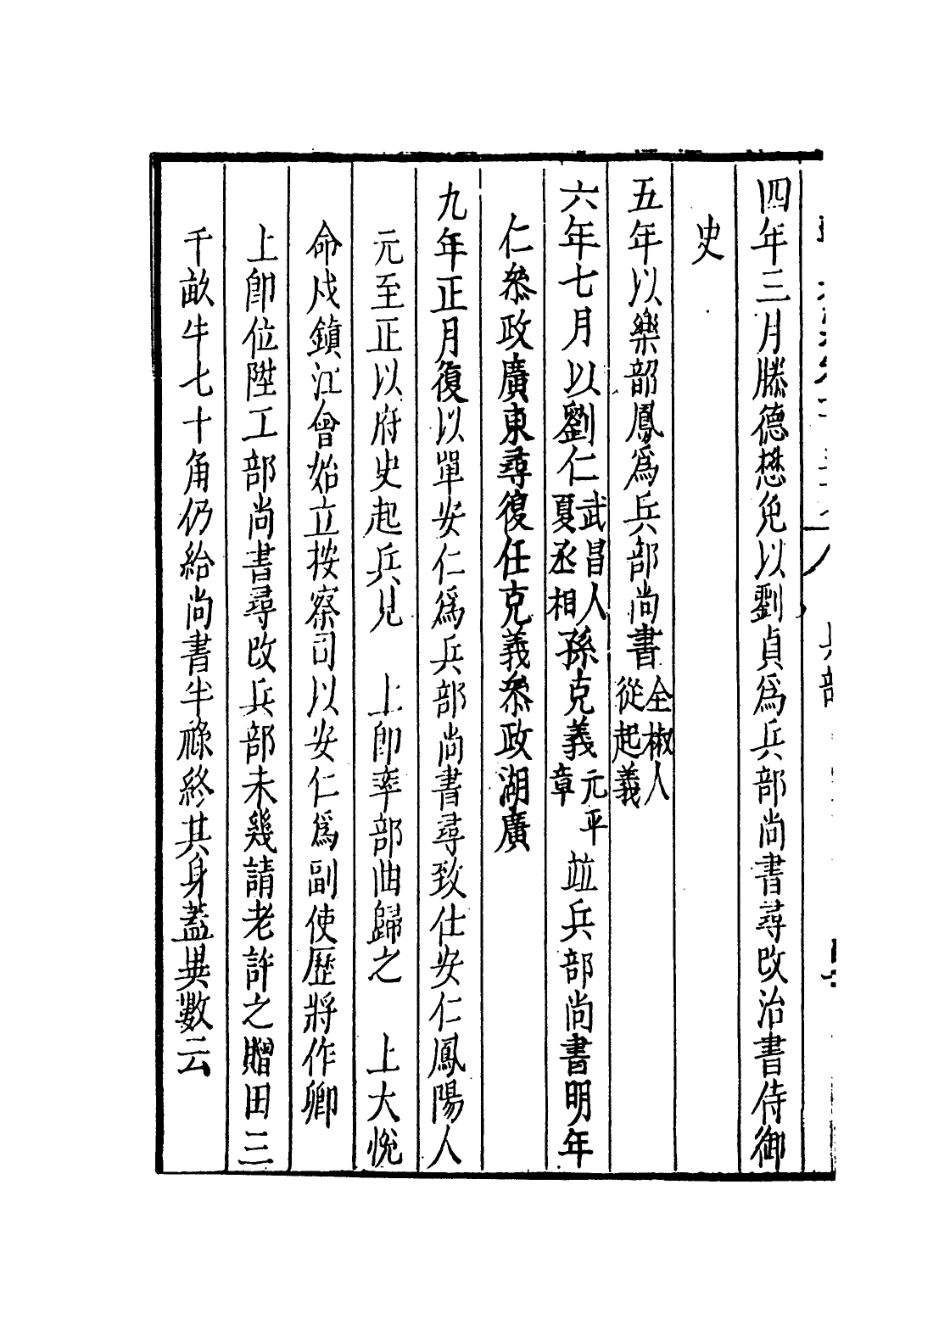 四年三月滕德懋免以劉貞爲兵部尚書尋改治書侍御
史
五年以樂韶鳳爲兵部尚書全椒人從起義
六年七月以劉仁武昌人夏丞相孫克義元平章竝兵部尚書明年
仁叅政廣東尋復任克義叅政湖廣
九年正月復以單安仁爲兵部尚書尋致仕安仁鳳陽人
元至正以府史起兵見 上卽率部曲歸之 上大悅
命戍鎮江會始立按察司以安仁爲副使歷將作卿
上卽位陞工部尚書尋改兵部未幾請老許之贈田三
千畝牛七十角仍給尚書半祿終其身蓋異數云